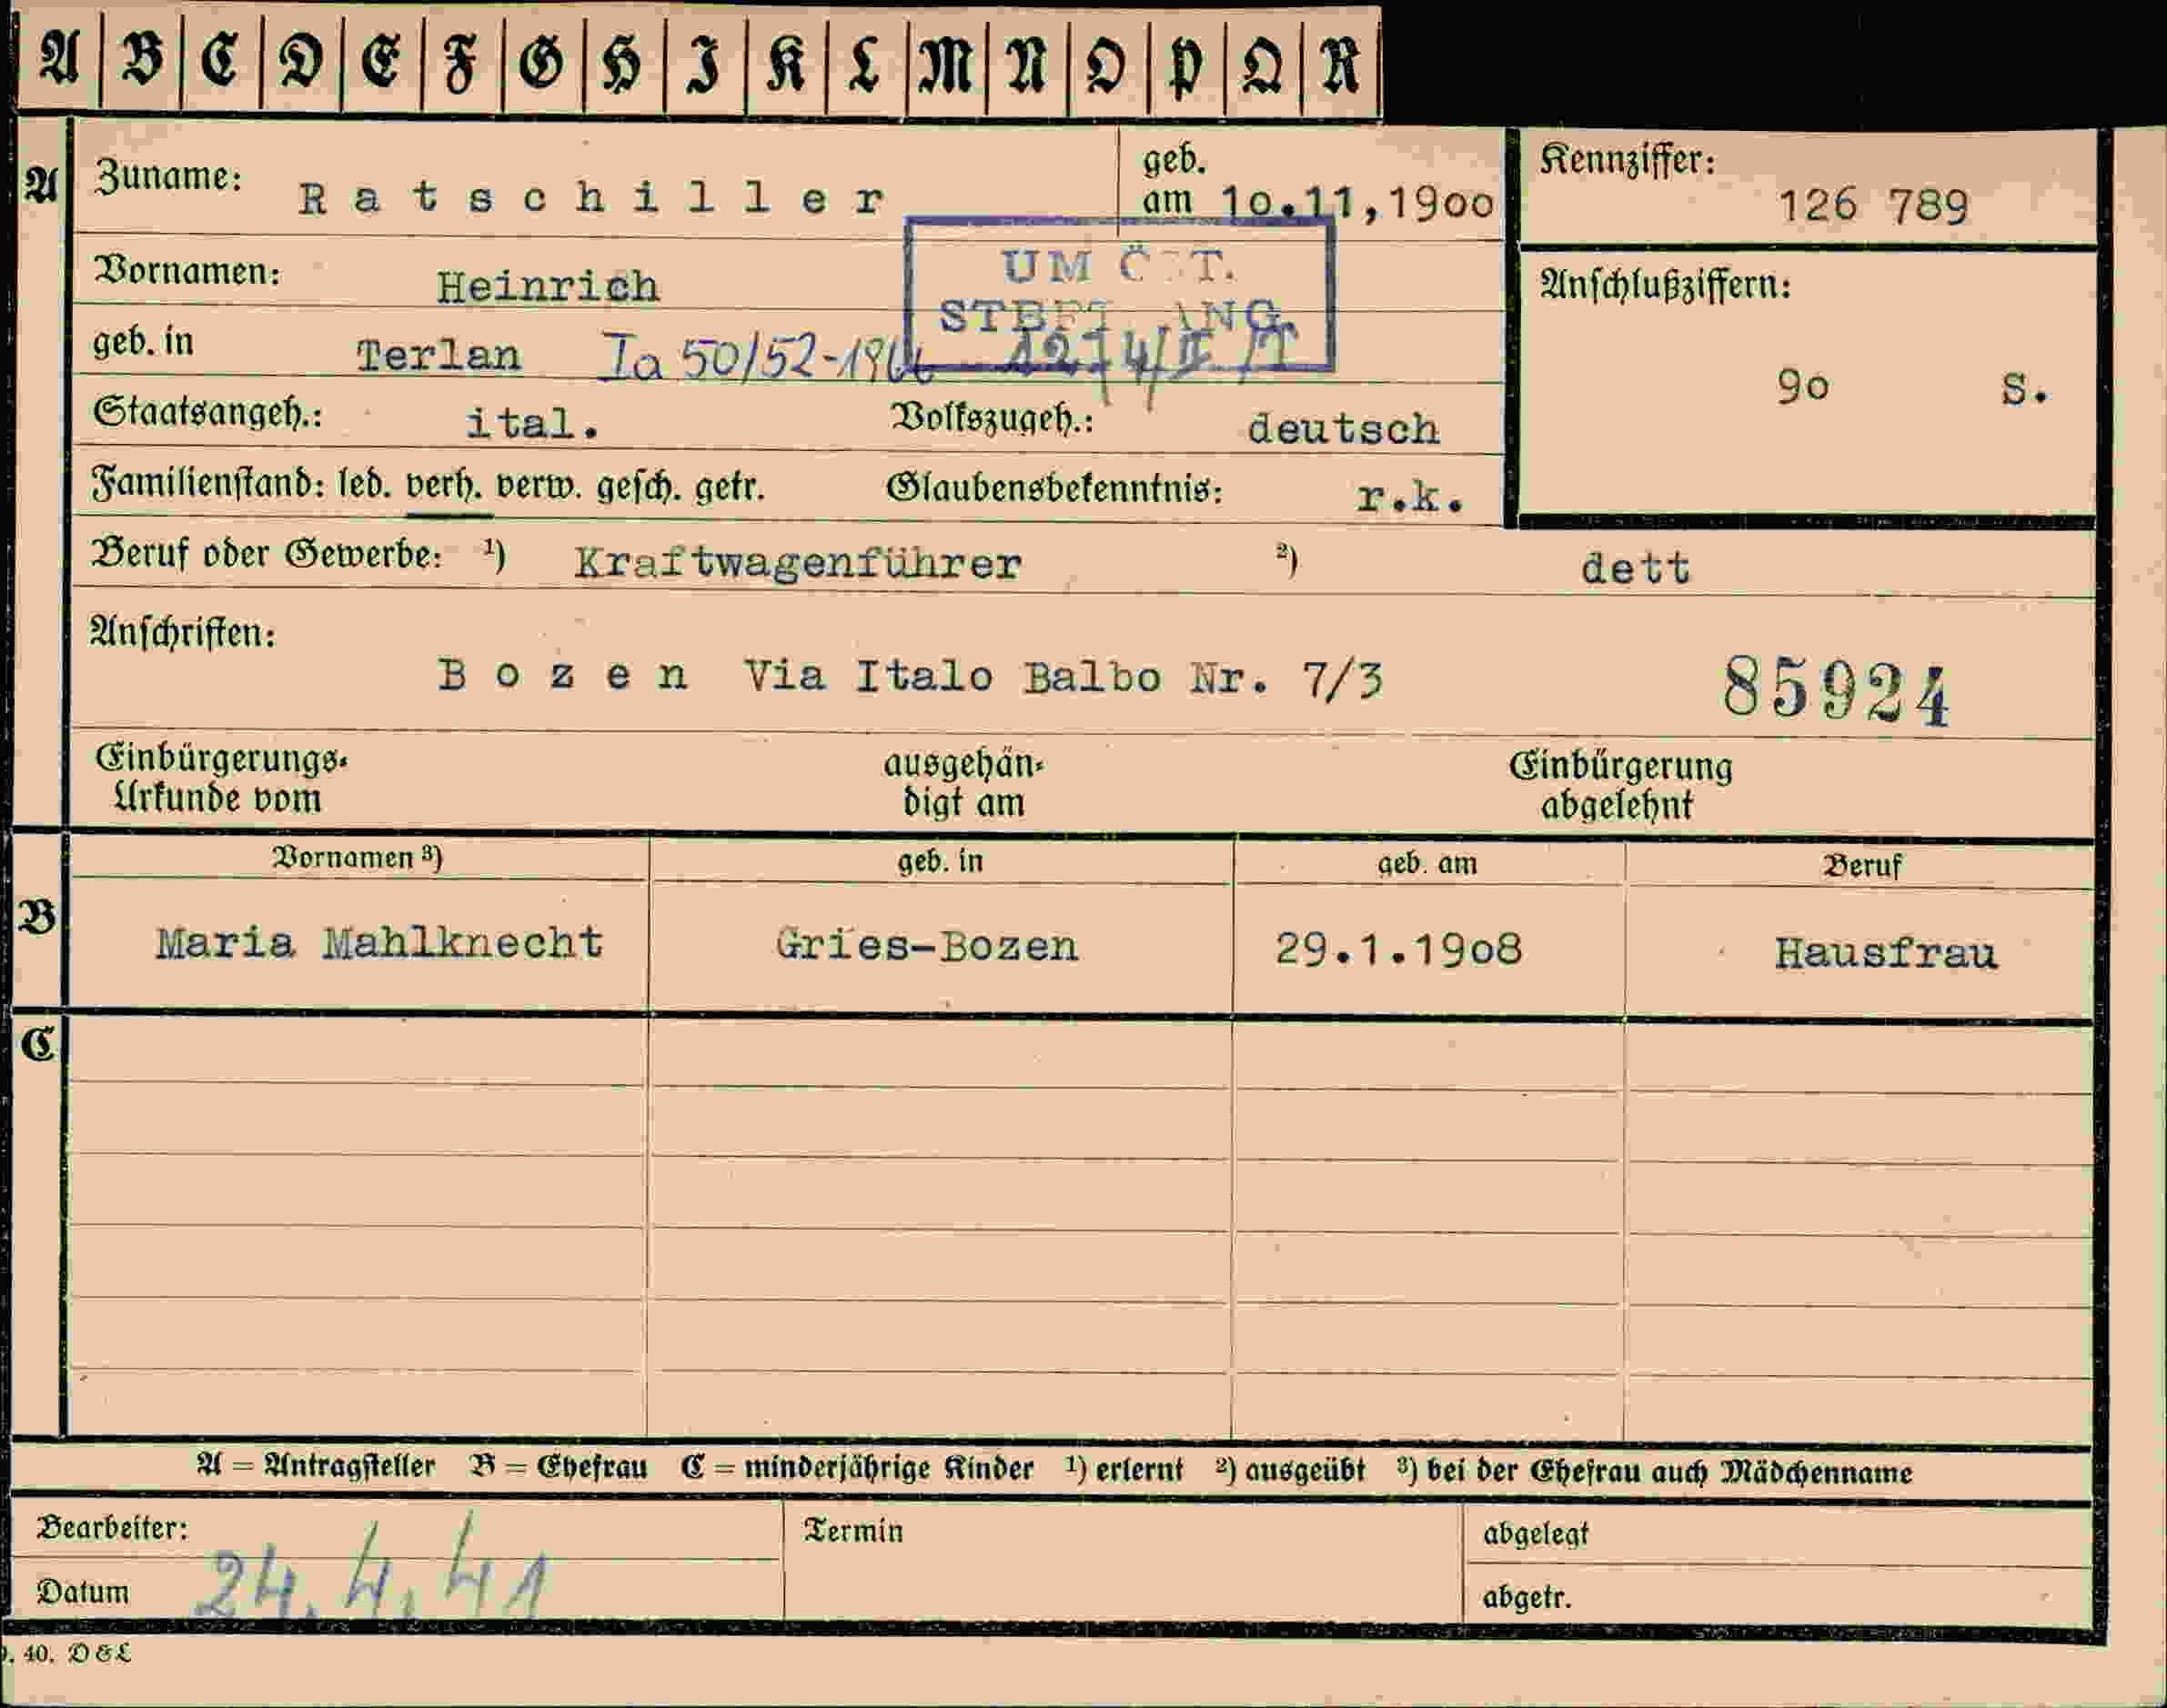 A B C D E F G H I K L M N O P Q R
A
Zuname: Ratschiller
geb. am 10.11,1900
Kennziffer: 126 789
Vornamen: Heinrich
UM
Anschlußziffern:
90 S.
geb. in Terlan Ia 50/52-1966
Staatsangeh.: ital. Volkszugeh.: deutsch
Familienstand: led. verh. verw. gesch. getr. Glaubensbekenntnis: r.k.
Beruf oder Gewerbe: ¹) Kraftwagenführer ²) dett
Anschriften:
Bozen Via Italo Balbo Nr. 7/3 85924
Einbürgerungs-
Urkunde vom
ausgehän-
digt am
Einbürgerung
abgelehnt
B
Vornamen ³) geb. in geb. am Beruf
Maria Mahlknecht Gries-Bozen 29.1.1908 Hausfrau
C
A = Antragsteller B = Ehefrau C = minderjährige Kinder ¹) erlernt ²) ausgeübt ³) bei der Ehefrau auch Mädchenname
Bearbeiter: Termin abgelegt
Datum 24.4.41 abgetr.
40. D&L